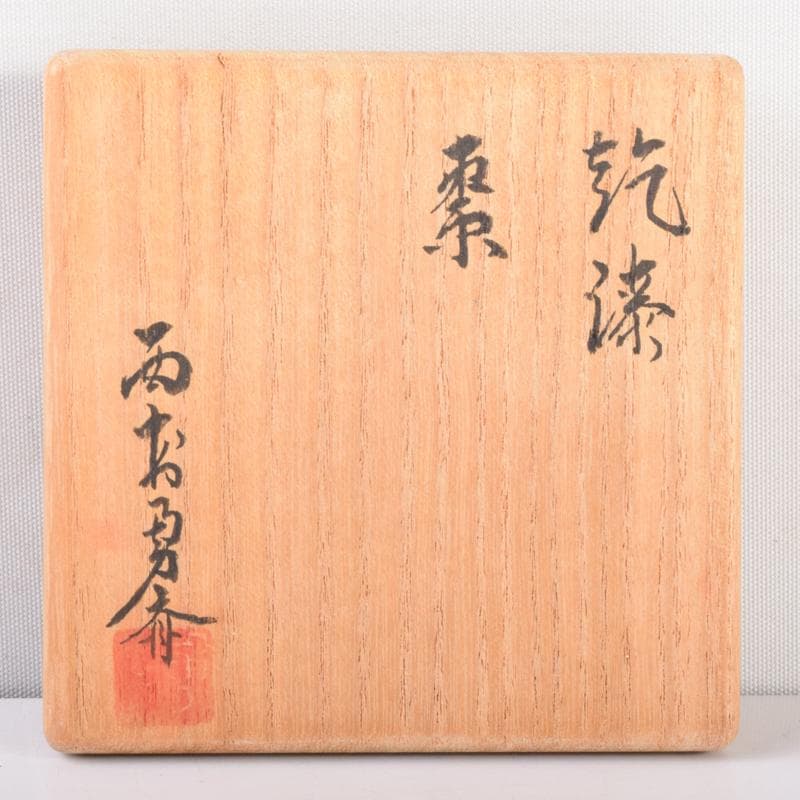 乾漆
棗
西村勇斎